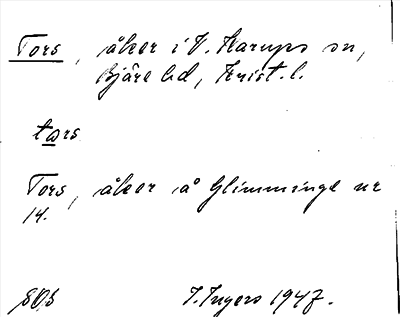 Tors, åker i V. Karups sn,
Bjäre hd, Krist. l.
tors
Tors, åker å Glimminge nr
14.
I. Ingers 1947.